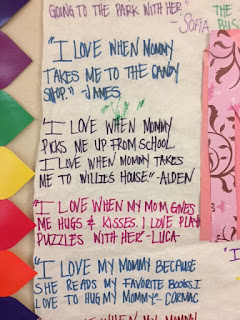 GOING TO THE PARK WITH HER"
-SOFIA
THE
BUS
"I LOVE WHEN MOMMY
TAKES ME TO THE CANDY
SHOP." -JAMES
"I LOVE WHEN MOMMY
PICKS ME UP FROM SCHOOL
I LOVE WHEN MOMMY TAKES
ME TO WILLIS HOUSE" -ALDEN
"I LOVE WHEN MY MOM GIVES
ME HUGS & KISSES. I LOVE PLAY
PUZZLES WITH HER" -LUCA-
"I LOVE MY MOMMY BECAUSE
SHE READS MY FAVORITE BOOKS. I
LOVE TO HUG MY MOMMY"- CORMAC
WHEN MY MOMMY